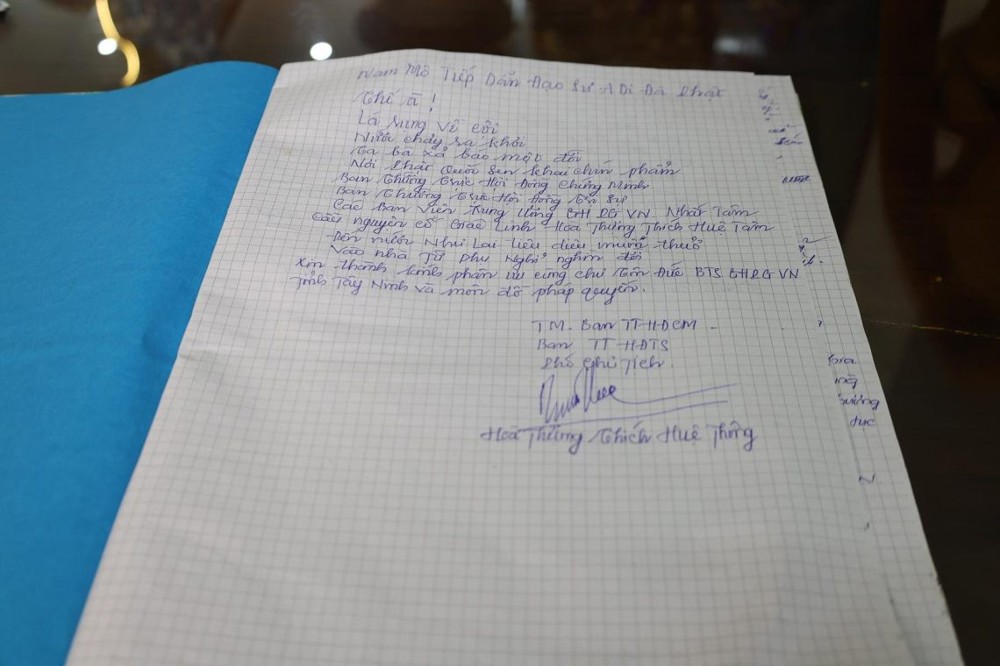 Nam Mô Tiếp Dẫn Đạo Sư A Di Đà Phật
Thí ã!
Lá rụng về cội
Nước chảy ra khơi
Ta bà xả báo một đời
Nơi Phật Quốc sen khai chín phẩm
Ban Thường Trực Hội Đồng Chứng Minh
Ban Thường Trực Hội Đồng Trị Sự
Các Ban Viện Trung Ương GHPGVN Nhất Tâm
Cầu nguyện cố Giác Linh Hoà Thượng Thích Huệ Tâm
Đến nước Như Lai tiêu diêu muôn thuở
Vào nhà Từ Phụ Nghỉ nghìn đời
Xin thành kính phân ưu cùng chư Tôn Đức BTS GHPGVN
tỉnh Tây Ninh và môn đồ pháp quyến.
TM. Ban TT HĐCM
Ban TT HĐTS
Phó Chủ Tịch
Hoà Thượng Thích Huệ Thông
dục